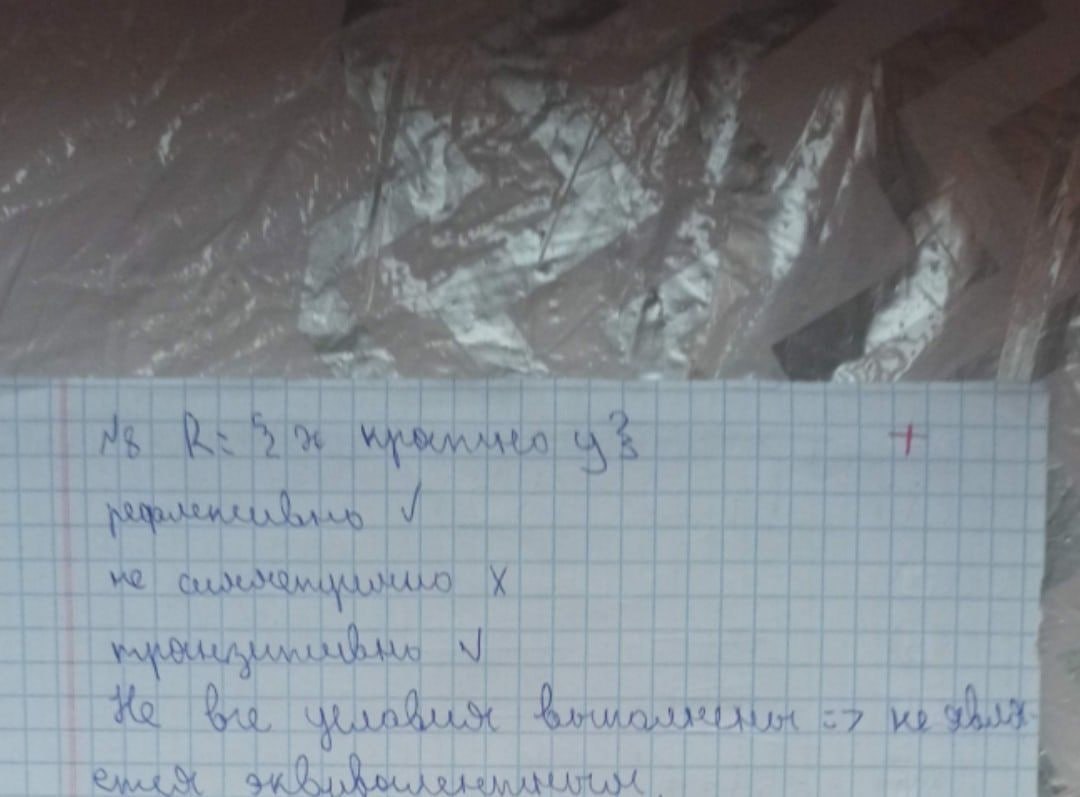 №8 R = {x кратно y} +
рефлексивно ✓
не симметрично x
транзитивно ✓
Не все условия выполнены => не явля-
ется эквивалентным.